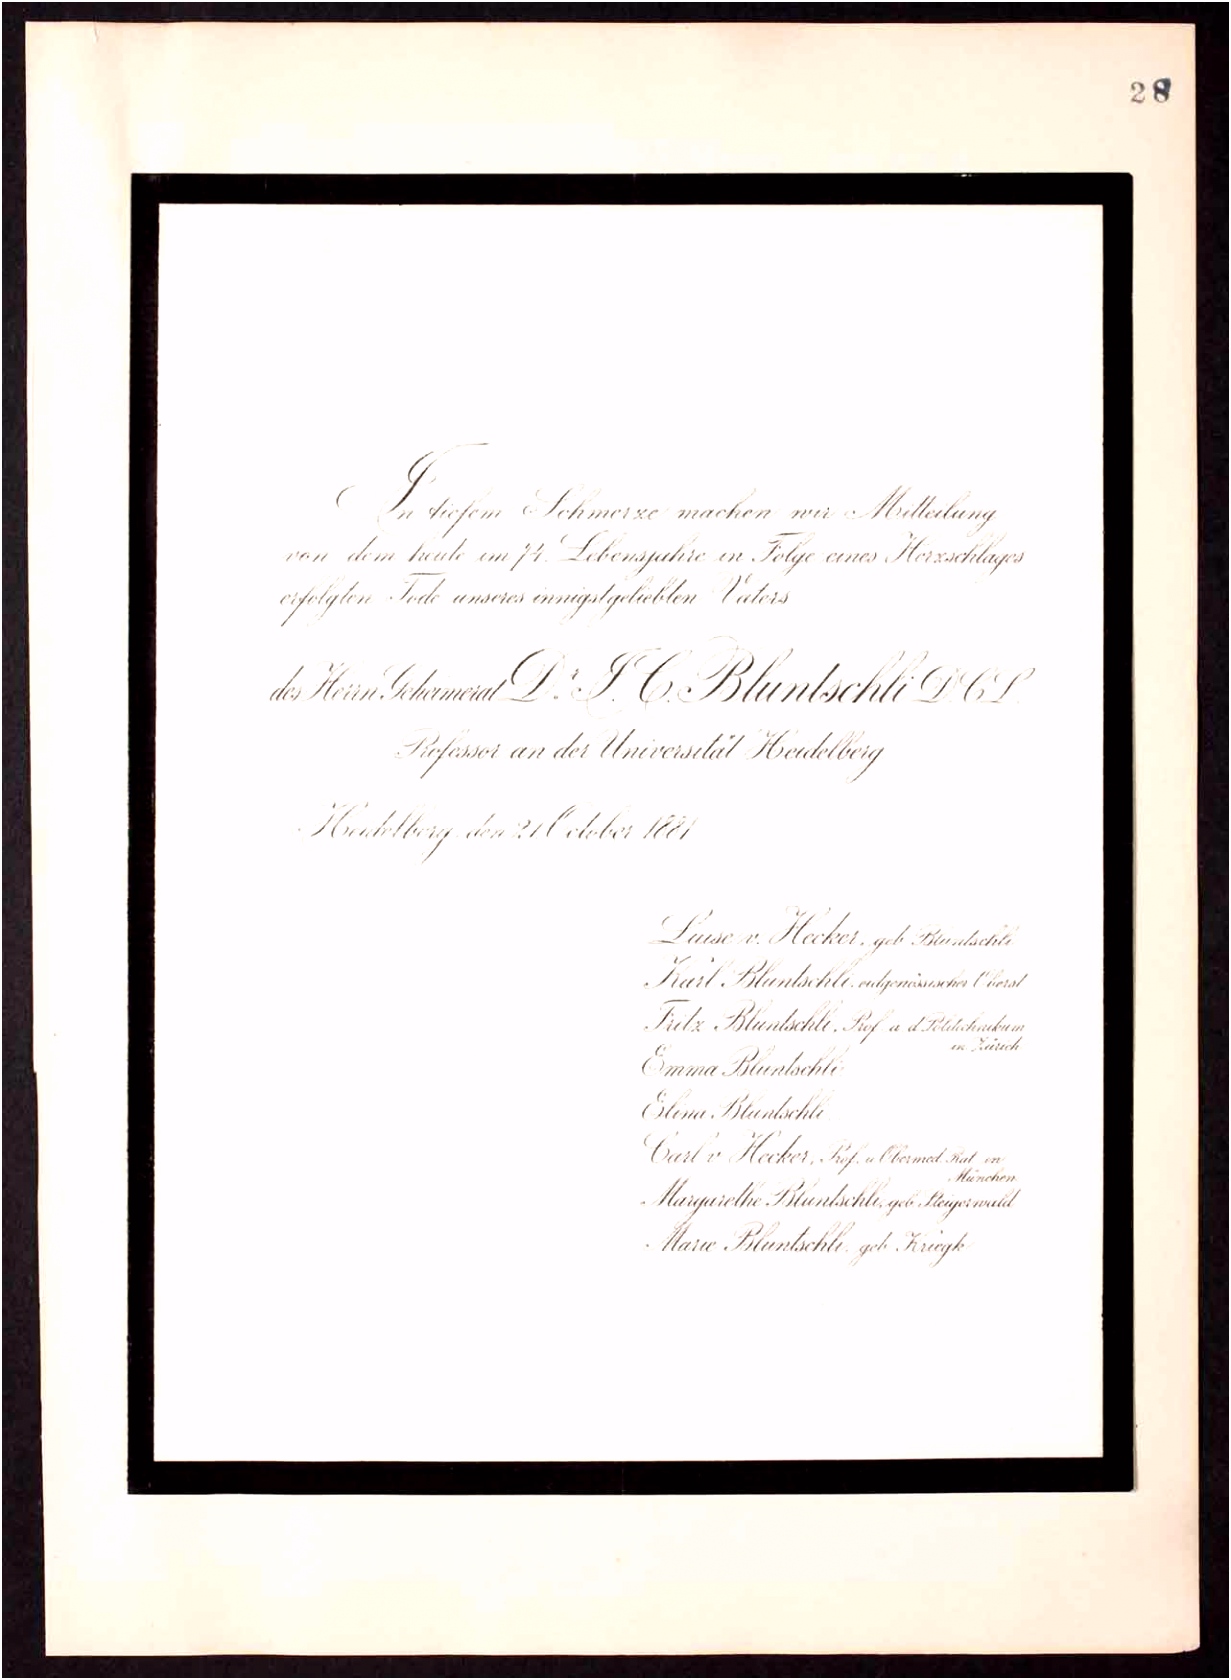 28
In tiefem Schmerze machen wir Mitteilung
von dem heute im 74. Lebensjahre in Folge eines Herzschlages
erfolgten Tode unseres innigstgeliebten Vaters
des Herrn Geheimerat Dr. J. C. Bluntschli D. C. L.
Professor an der Universität Heidelberg
Heidelberg, den 21 October 1881
Luise v. Hecker, geb. Bluntschli
Karl Bluntschli, eidgenössischer Oberst
Fritz Bluntschli, Prof a d Politechnikum
in Zürich
Emma Bluntschli
Elina Bluntschli
Carl v Hecker, Prof. u Obermed. Rat in
München
Margarethe Bluntschli, geb Steigerwald
Marie Bluntschli, geb Kriegk